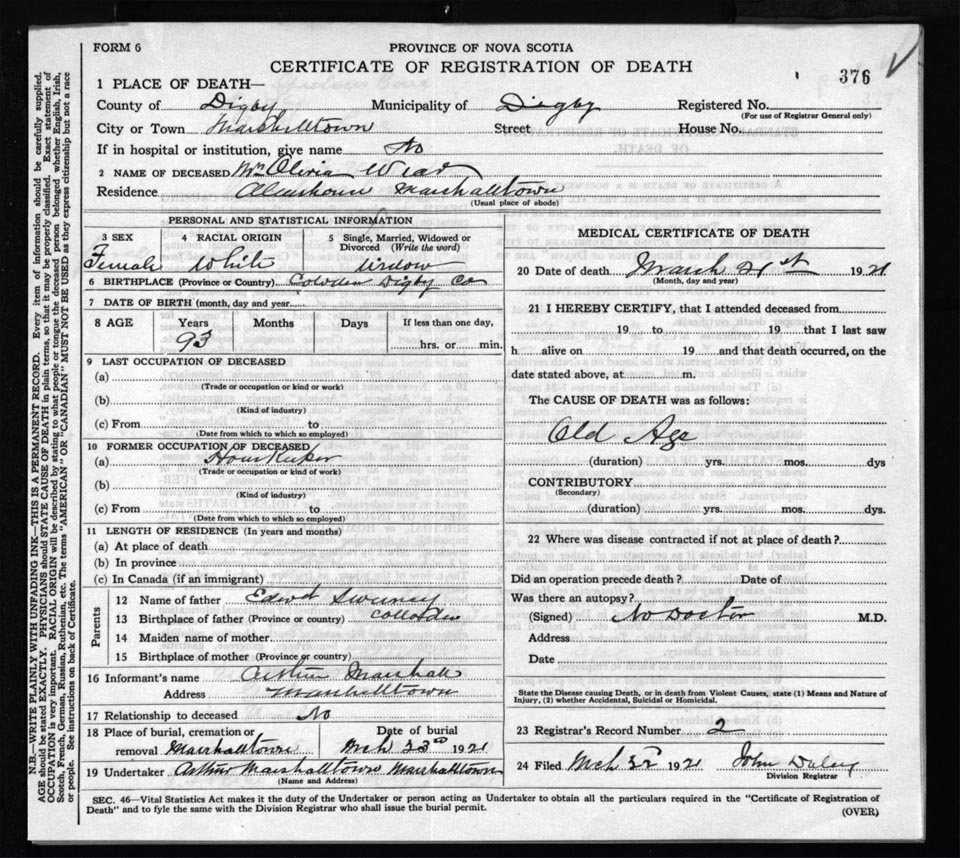 FORM 6
PROVINCE OF NOVA SCOTIA
CERTIFICATE OF REGISTRATION OF DEATH
376
1 PLACE OF DEATH—
County of Digby Municipality of Digby Registered No.
(For use of Registrar General only)
City or Town Marshalltown Street House No.
If in hospital or institution, give name No
2 NAME OF DECEASED Mrs Olivia
Residence Almshouse Marshalltown
(Usual place of abode)
PERSONAL AND STATISTICAL INFORMATION
3 SEX 4 RACIAL ORIGIN 5 Single, Married, Widowed or
Divorced (Write the word)
Female White Widow
6 BIRTHPLACE (Province or Country) Digby Co
7 DATE OF BIRTH (month, day and year)
8 AGE Years Months Days If less than one day,
93 hrs. or min.
9 LAST OCCUPATION OF DECEASED
(a)
(Trade or occupation or kind or work)
(b)
(Kind of industry)
(c) From to
(Date from which to which so employed)
10 FORMER OCCUPATION OF DECEASED
(a) Housekeeper
(Trade or occupation or kind of work)
(b)
(Kind of industry)
(c) From to
(Date from which to which so employed)
11 LENGTH OF RESIDENCE (In years and months)
(a) At place of death
(b) In province
(c) In Canada (if an immigrant)
Parents
12 Name of father Edwd Sweeney
13 Birthplace of father (Province or country)
14 Maiden name of mother
15 Birthplace of mother (Province or country)
16 Informant's name Arthur Marshall
Address Marshalltown
17 Relationship to deceased No
18 Place of burial, cremation or Date of burial
removal Marshalltown Mch 23rd 1921
19 Undertaker Arthur Marshalltown Marshalltown
(Name and Address)
MEDICAL CERTIFICATE OF DEATH
20 Date of death March 21st 1921
(Month, day and year)
21 I HEREBY CERTIFY, that I attended deceased from
19 to 19 that I last saw
h alive on 19 and that death occurred, on the
date stated above, at m.
The CAUSE OF DEATH was as follows:
Old Age
(duration) yrs. mos. dys
CONTRIBUTORY
(Secondary)
(duration) yrs. mos. dys.
22 Where was disease contracted if not at place of death?
Did an operation precede death? Date of
Was there an autopsy?
(Signed) No Doctor M.D.
Address
Date
State the Disease causing Death, or in death from Violent Causes, state (1) Means and Nature of
Injury, (2) whether Accidental, Suicidal or Homicidal.
23 Registrar's Record Number 2
24 Filed Mch 1921 John Daley
Division Registrar
SEC. 46—Vital Statistics Act makes it the duty of the Undertaker or person acting as Undertaker to obtain all the particulars required in the "Certificate of Registration of
Death" and to fyle the same with the Division Registrar who shall issue the burial permit.
(OVER)
N.B.—WRITE PLAINLY WITH UNFADING INK—THIS IS A PERMANENT RECORD. Every item of information should be carefully supplied.
AGE should be stated EXACTLY. PHYSICIANS should STATE CAUSE OF DEATH in plain terms, so that it may be properly classified. Exact statement of
OCCUPATION is very important. RACIAL ORIGIN will be described by stating to what people or tongue the deceased person belonged whether English, Irish,
Scotch, French, German, Russian, Ruthenian, etc. The terms "AMERICAN" OR "CANADIAN" MUST NOT BE USED as they express citizenship but not a race
or people. See instructions on back of Certificate.